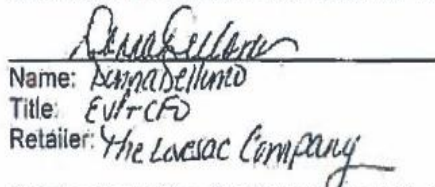 Donna Dellomo
Name: Donna Dellomo
Title: EVP + CFO
Retailer: The Lovesac Company